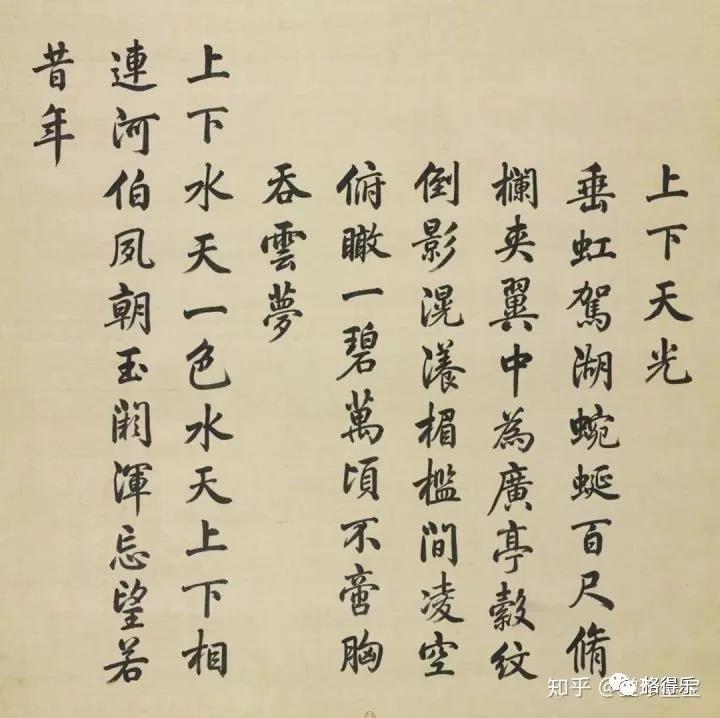 上下天光
垂虹駕湖蜿蜒百尺脩
欄夾翼中為廣亭縠紋
倒影滉瀁楣檻間凌空
俯瞰一碧萬頃不啻胸
吞雲夢
上下水天一色水天上下相
連河伯夙朝玉闕渾忘望若
昔年
知乎 @